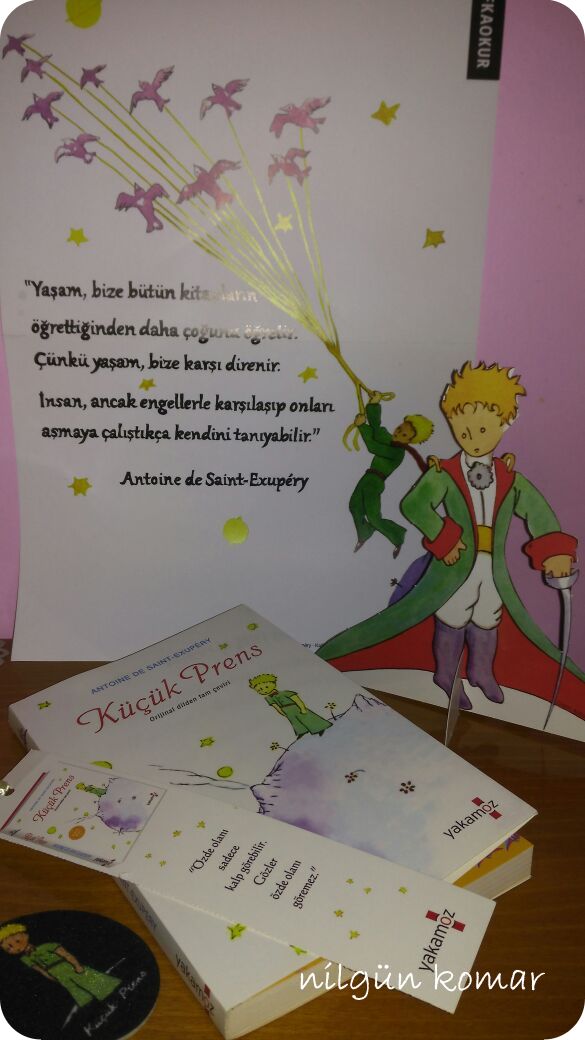 KAOKUR
"Yaşam, bize bütün kitapların
öğrettiğinden daha çoğunu öğretir.
Çünkü yaşam, bize karşı direnir.
İnsan, ancak engellerle karşılaşıp onları
aşmaya çalıştıkça kendini tanıyabilir."
Antoine de Saint-Exupéry
ANTOINE DE SAINT-EXUPÉRY
Küçük Prens
Orijinal dilden tam çeviri
yakamoz
Küçük Prens
"Özde olanı
sadece
kalp görebilir.
Gözler
özde olanı
göremez."
yakamoz
EXUPÉRY
yakamoz
Küçük Prens
nilgün komar